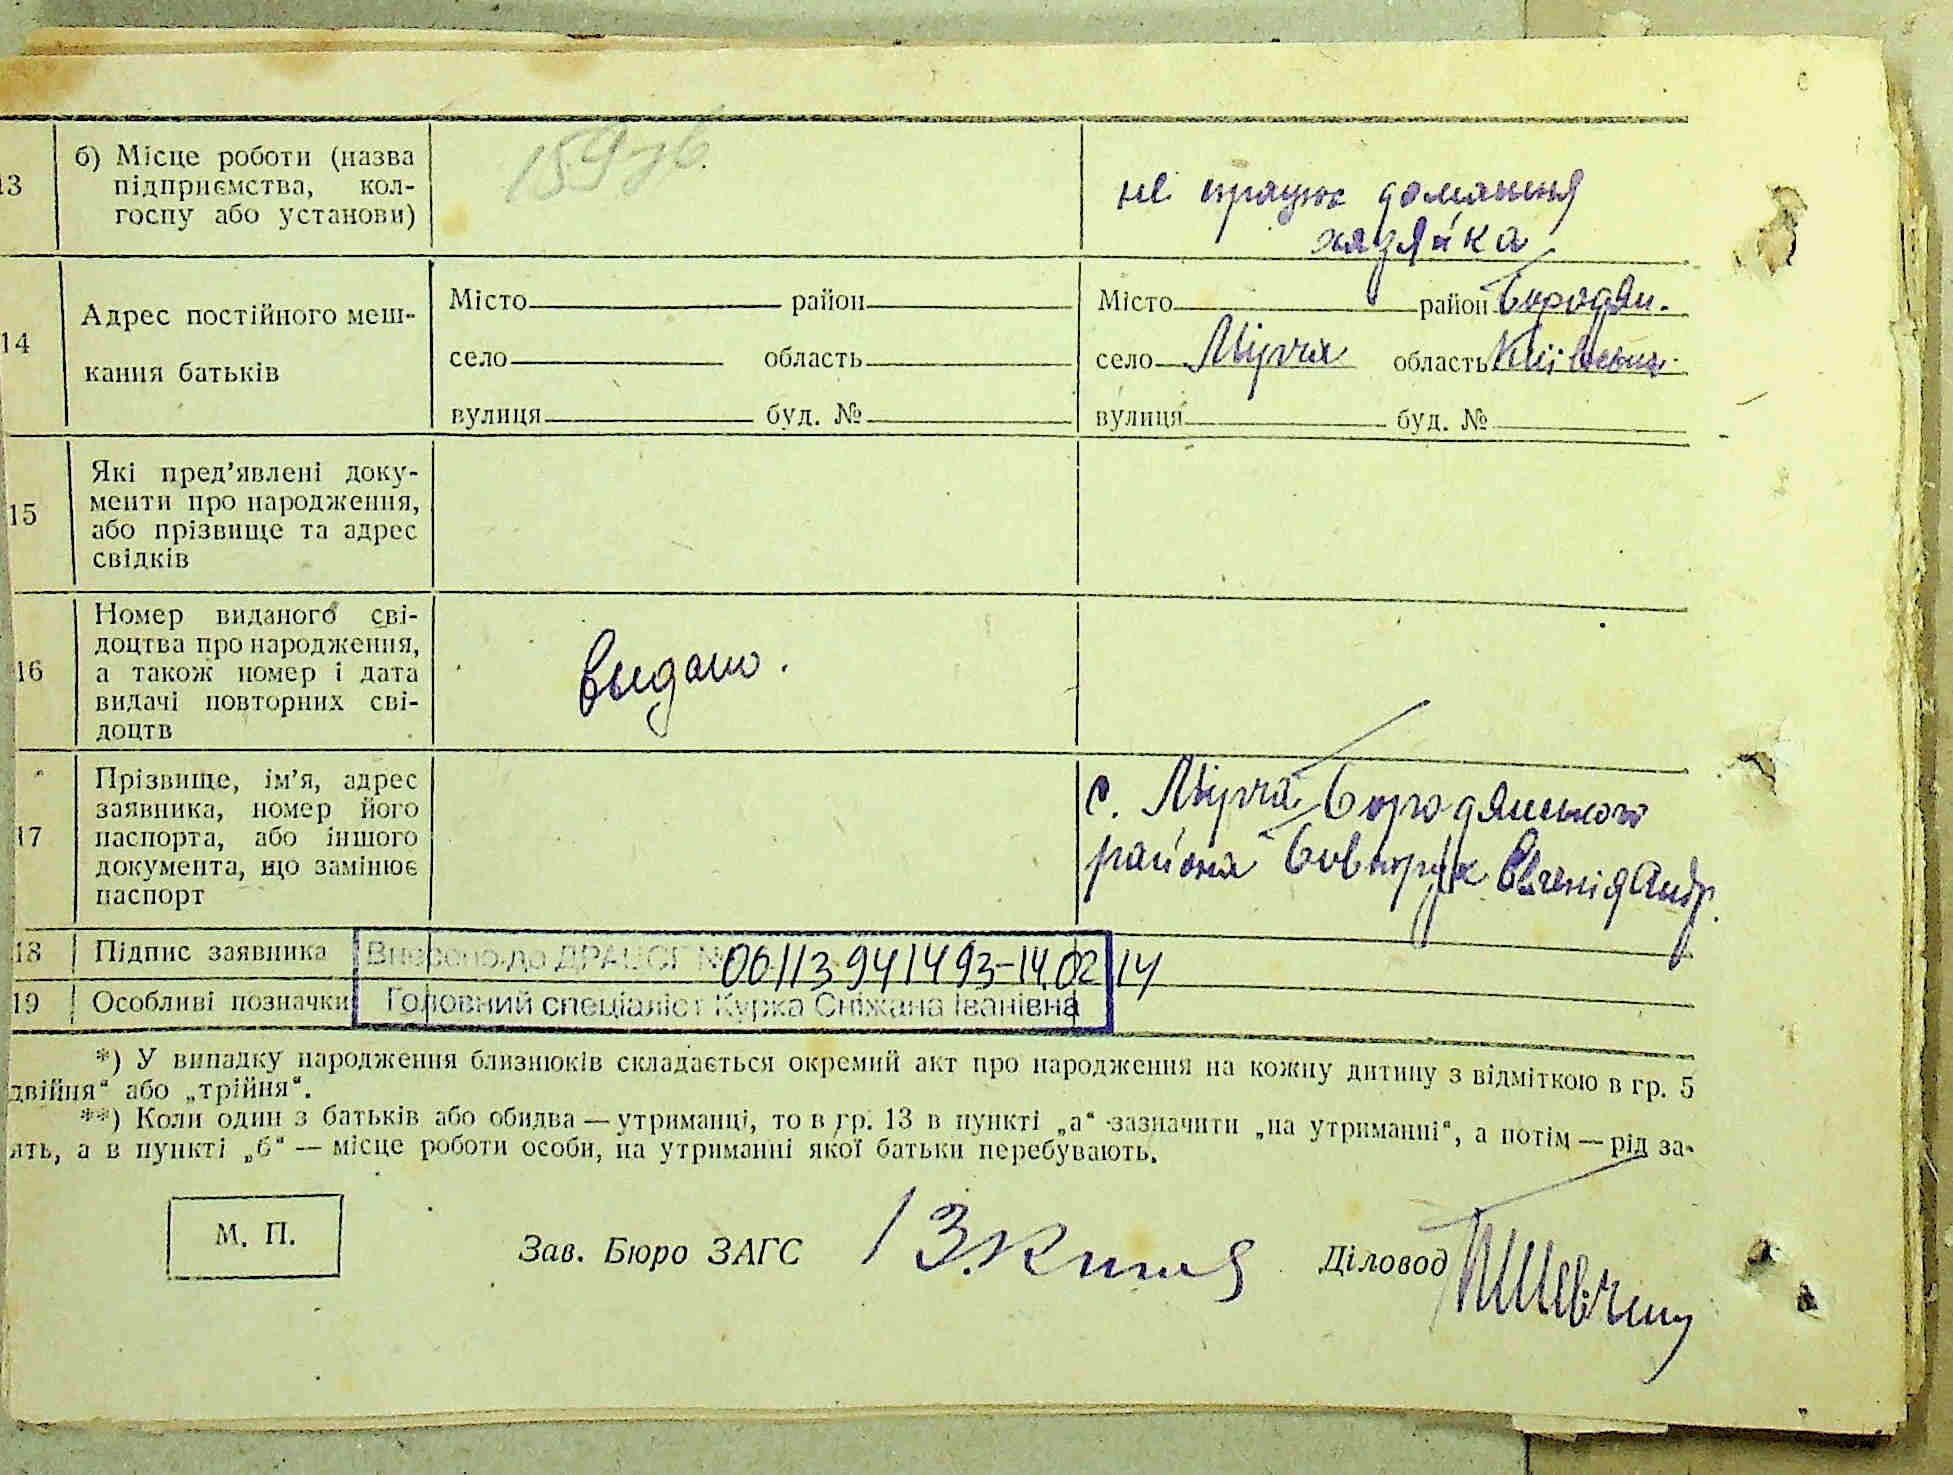 159 зв.
13 б) Місце роботи (назва
підприємства, кол-
госпу або установи)
не працює домашня
хазяйка
14 Адрес постійного меш-
кання батьків
Місто район Місто район Бородян.
село область село Мирча область Київська
вулиця буд. № вулиця буд. №
15 Які пред'явлені доку-
менти про народження,
або прізвище та адрес
свідків
16 Номер виданого сві-
доцтва про народження,
а також номер і дата
видачі повторних сві-
доцтв
видано.
17 Прізвище, ім'я, адрес
заявника, номер його
паспорта, або іншого
документа, що замінює
паспорт
с. Мирча Бородянського
района Бовкорук Євгенія Андр.
18 Підпис заявника Внесено до ДРАЦСГ № 00113941493-14.02 14
19 Особливі позначки Головний спеціаліст Куржа Сніжана Іванівна
*) У випадку народження близнюків складається окремий акт про народження на кожну дитину з відміткою в гр. 5
двійня“ або „трійня“.
**) Коли один з батьків або обидва — утриманці, то в гр. 13 в пункті „а“ зазначити „на утриманні“, а потім — рід за-
ять, а в пункті „б“ — місце роботи особи, на утриманні якої батьки перебувають.
М. П. Зав. Бюро ЗАГС Діловод